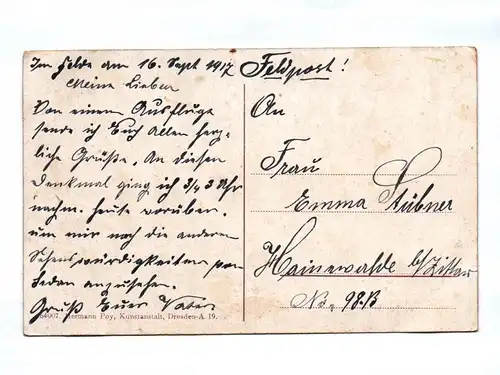 Im Felde am 16. Sept 1917
Meine Lieben
Von einem Ausfluge
sende ich Euch Allen herz-
liche Grüße. An diesen
Denkmal ging ich 3/4 3 Uhr
nachm. heute vorüber.
um mir noch die anderen
Sehenswürdigkeiten von
Sedan anzusehen.
Gruß Euer Vater
64007. Hermann Poy, Kunstanstalt, Dresden-A. 19.
Feldpost!
An
Frau
Emma Stübner
Hainewalde b/Zittau
No. 98.B